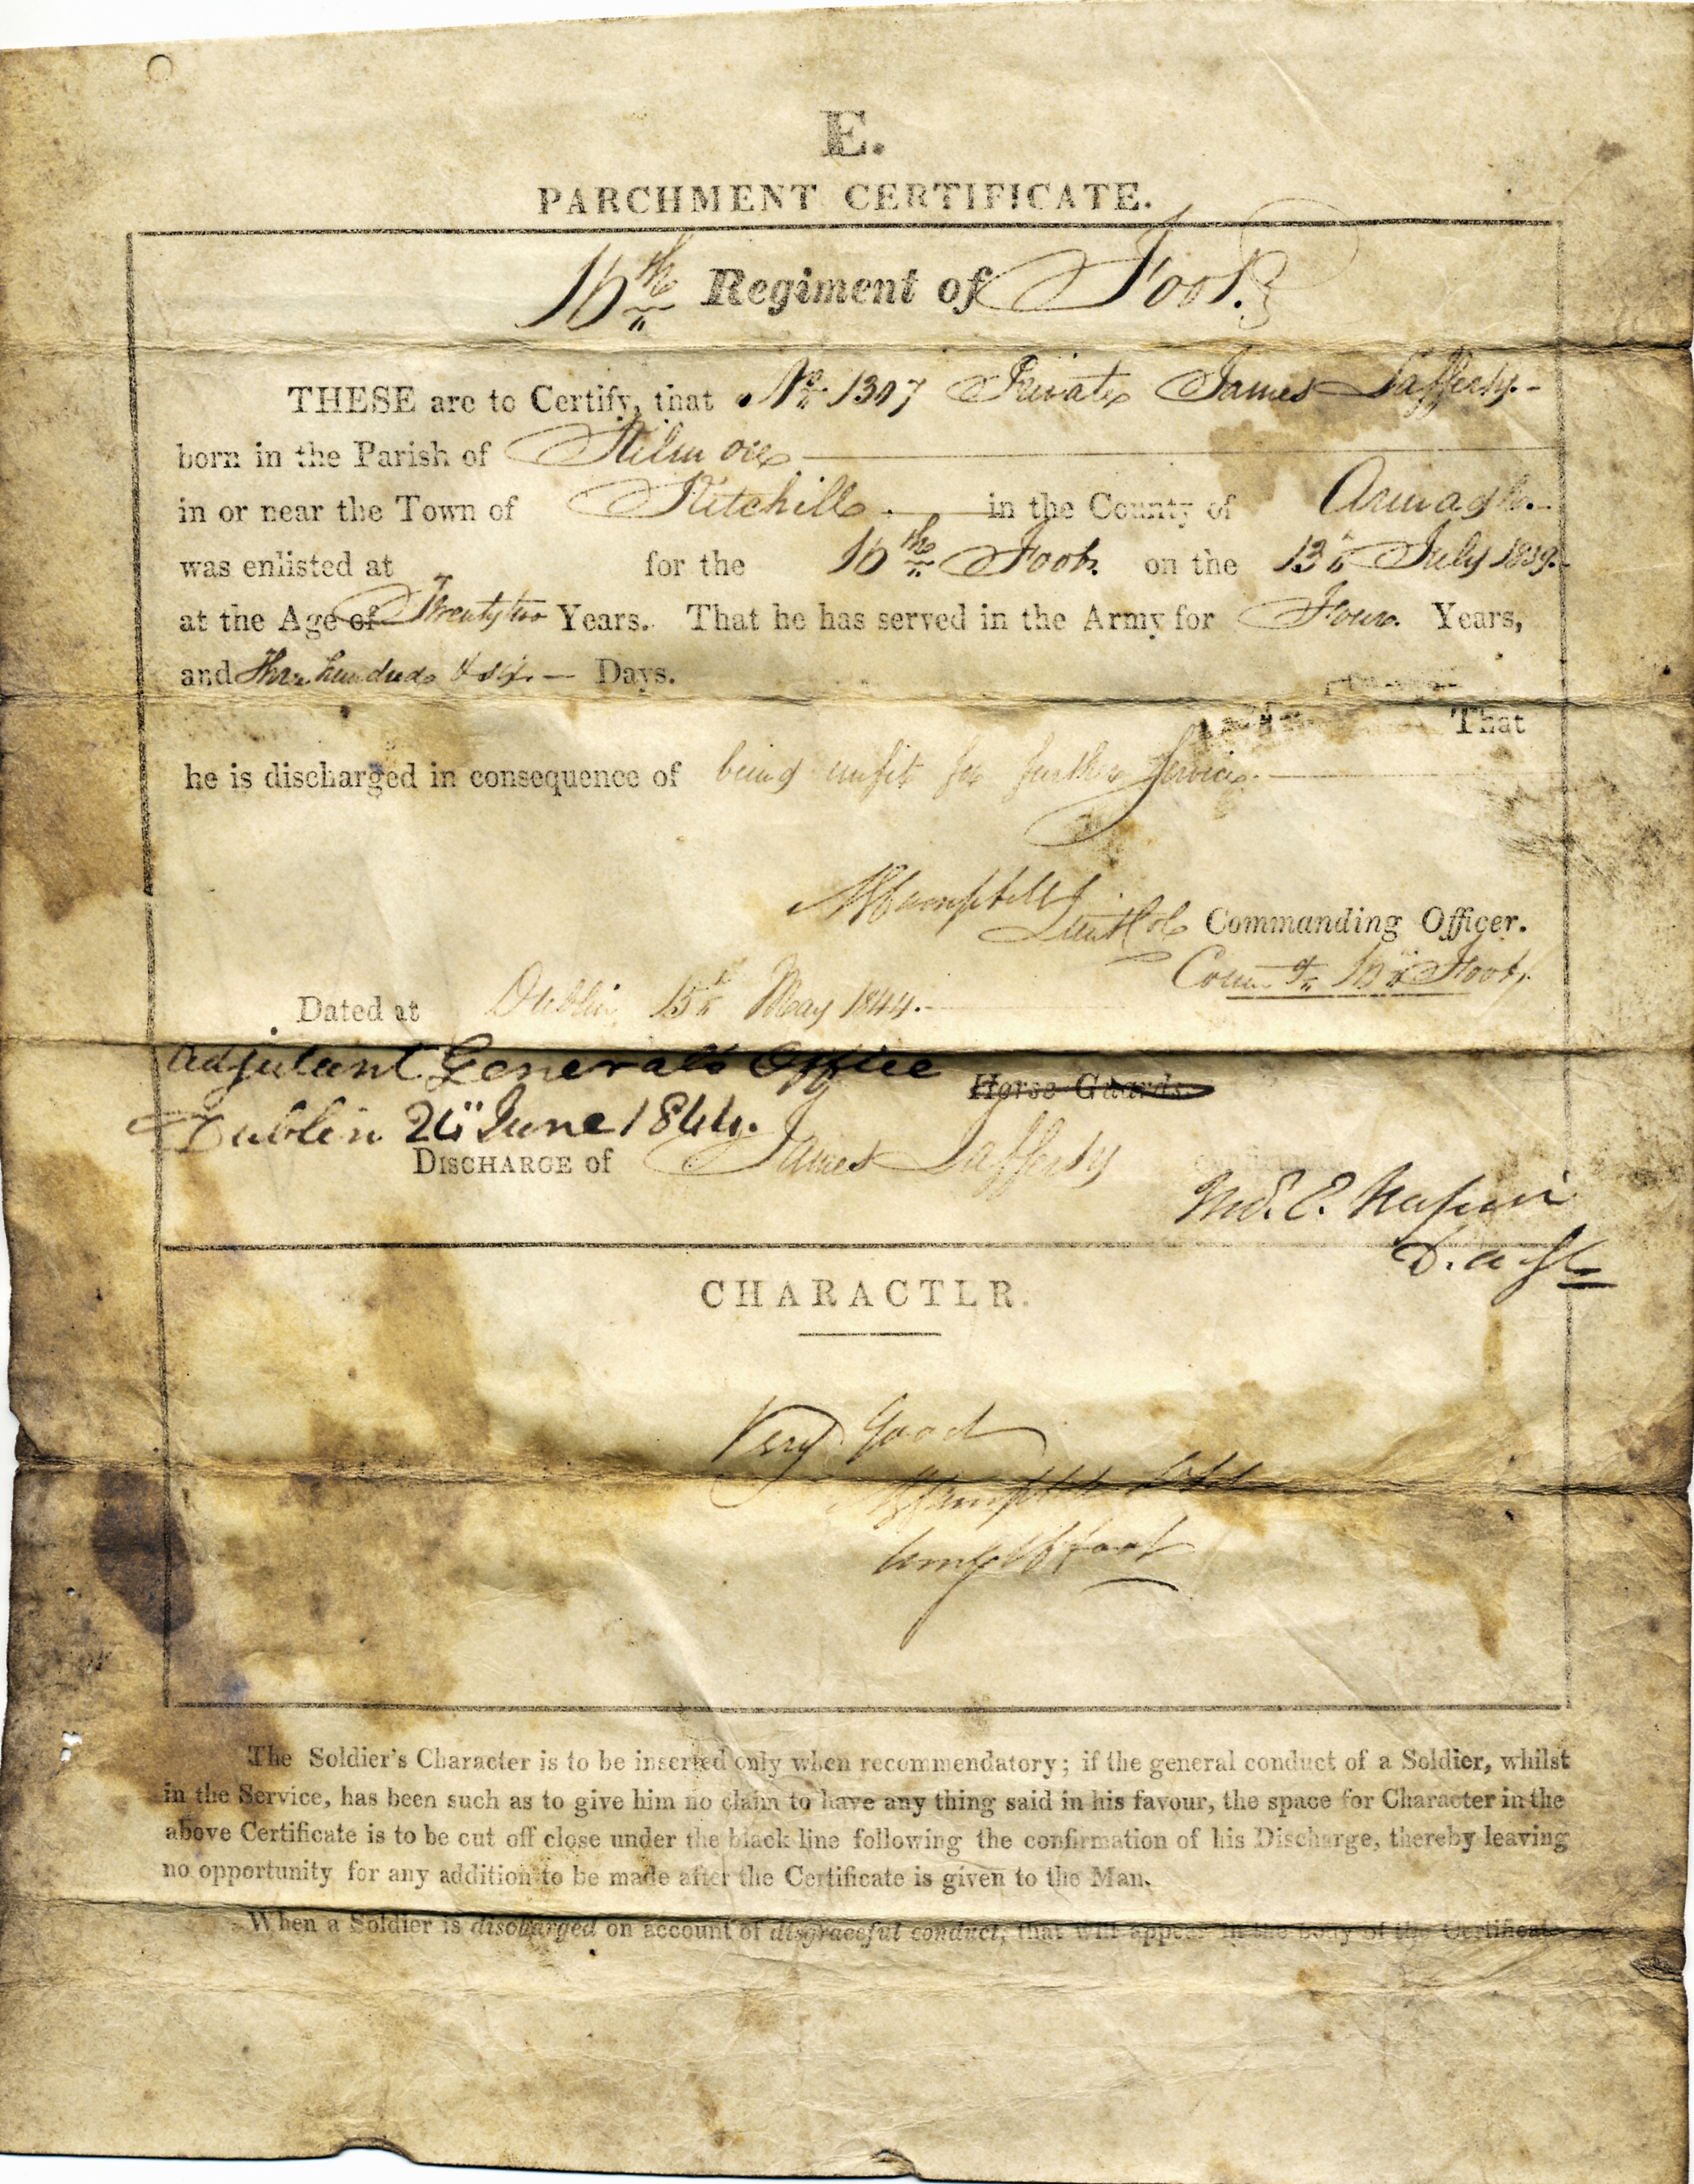 E.
PARCHMENT CERTIFICATE.
16th Regiment of Foot.
THESE are to Certify, that No. 1307 Private James Lafferty.
born in the Parish of Kilmore
in or near the Town of Richhill in the County of Armagh.
was enlisted at for the 16th Foot on the 13th July 1839.
at the Age of Twenty two Years. That he has served in the Army for Four Years,
and Three hundred & six Days.
That
he is discharged in consequence of being unfit for further Service.
Lieut Col Commanding Officer.
16th Foot
Dated at Dublin 15th May 1844.
Adjutant Generals Office
Horse Guards
Dublin 24" June 1844.
DISCHARGE of James Lafferty
D.A.G.
CHARACTER.
Very Good
16 Foot
The Soldier's Character is to be inserted only when recommendatory; if the general conduct of a Soldier, whilst
in the Service, has been such as to give him no claim to have any thing said in his favour, the space for Character in the
above Certificate is to be cut off close under the black line following the confirmation of his Discharge, thereby leaving
no opportunity for any addition to be made after the Certificate is given to the Man.
When a Soldier is discharged on account of disgraceful conduct, that will appear in the body of the Certificate